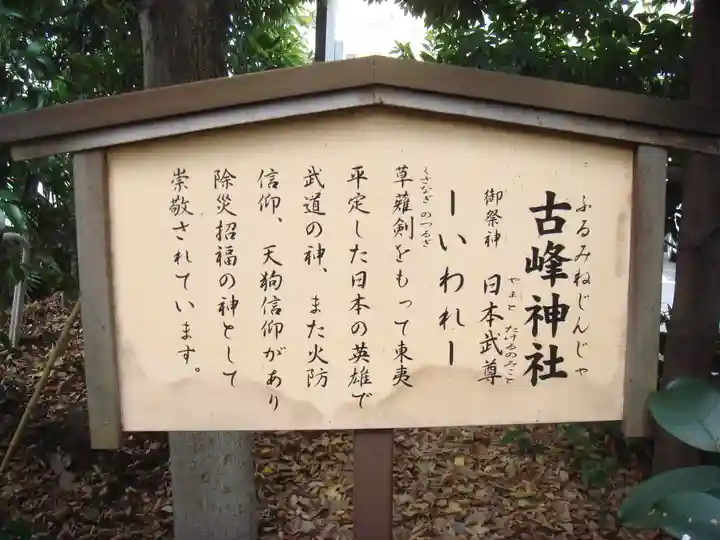 ふるみねじんじゃ
古峰神社
やまと たけるのみこと
御祭神 日本武尊
ーいわれー
くさなぎ のつるぎ
草薙剣をもって東夷
平定した日本の英雄で
武道の神、また火防
信仰、天狗信仰があり
除災招福の神として
崇敬されています。